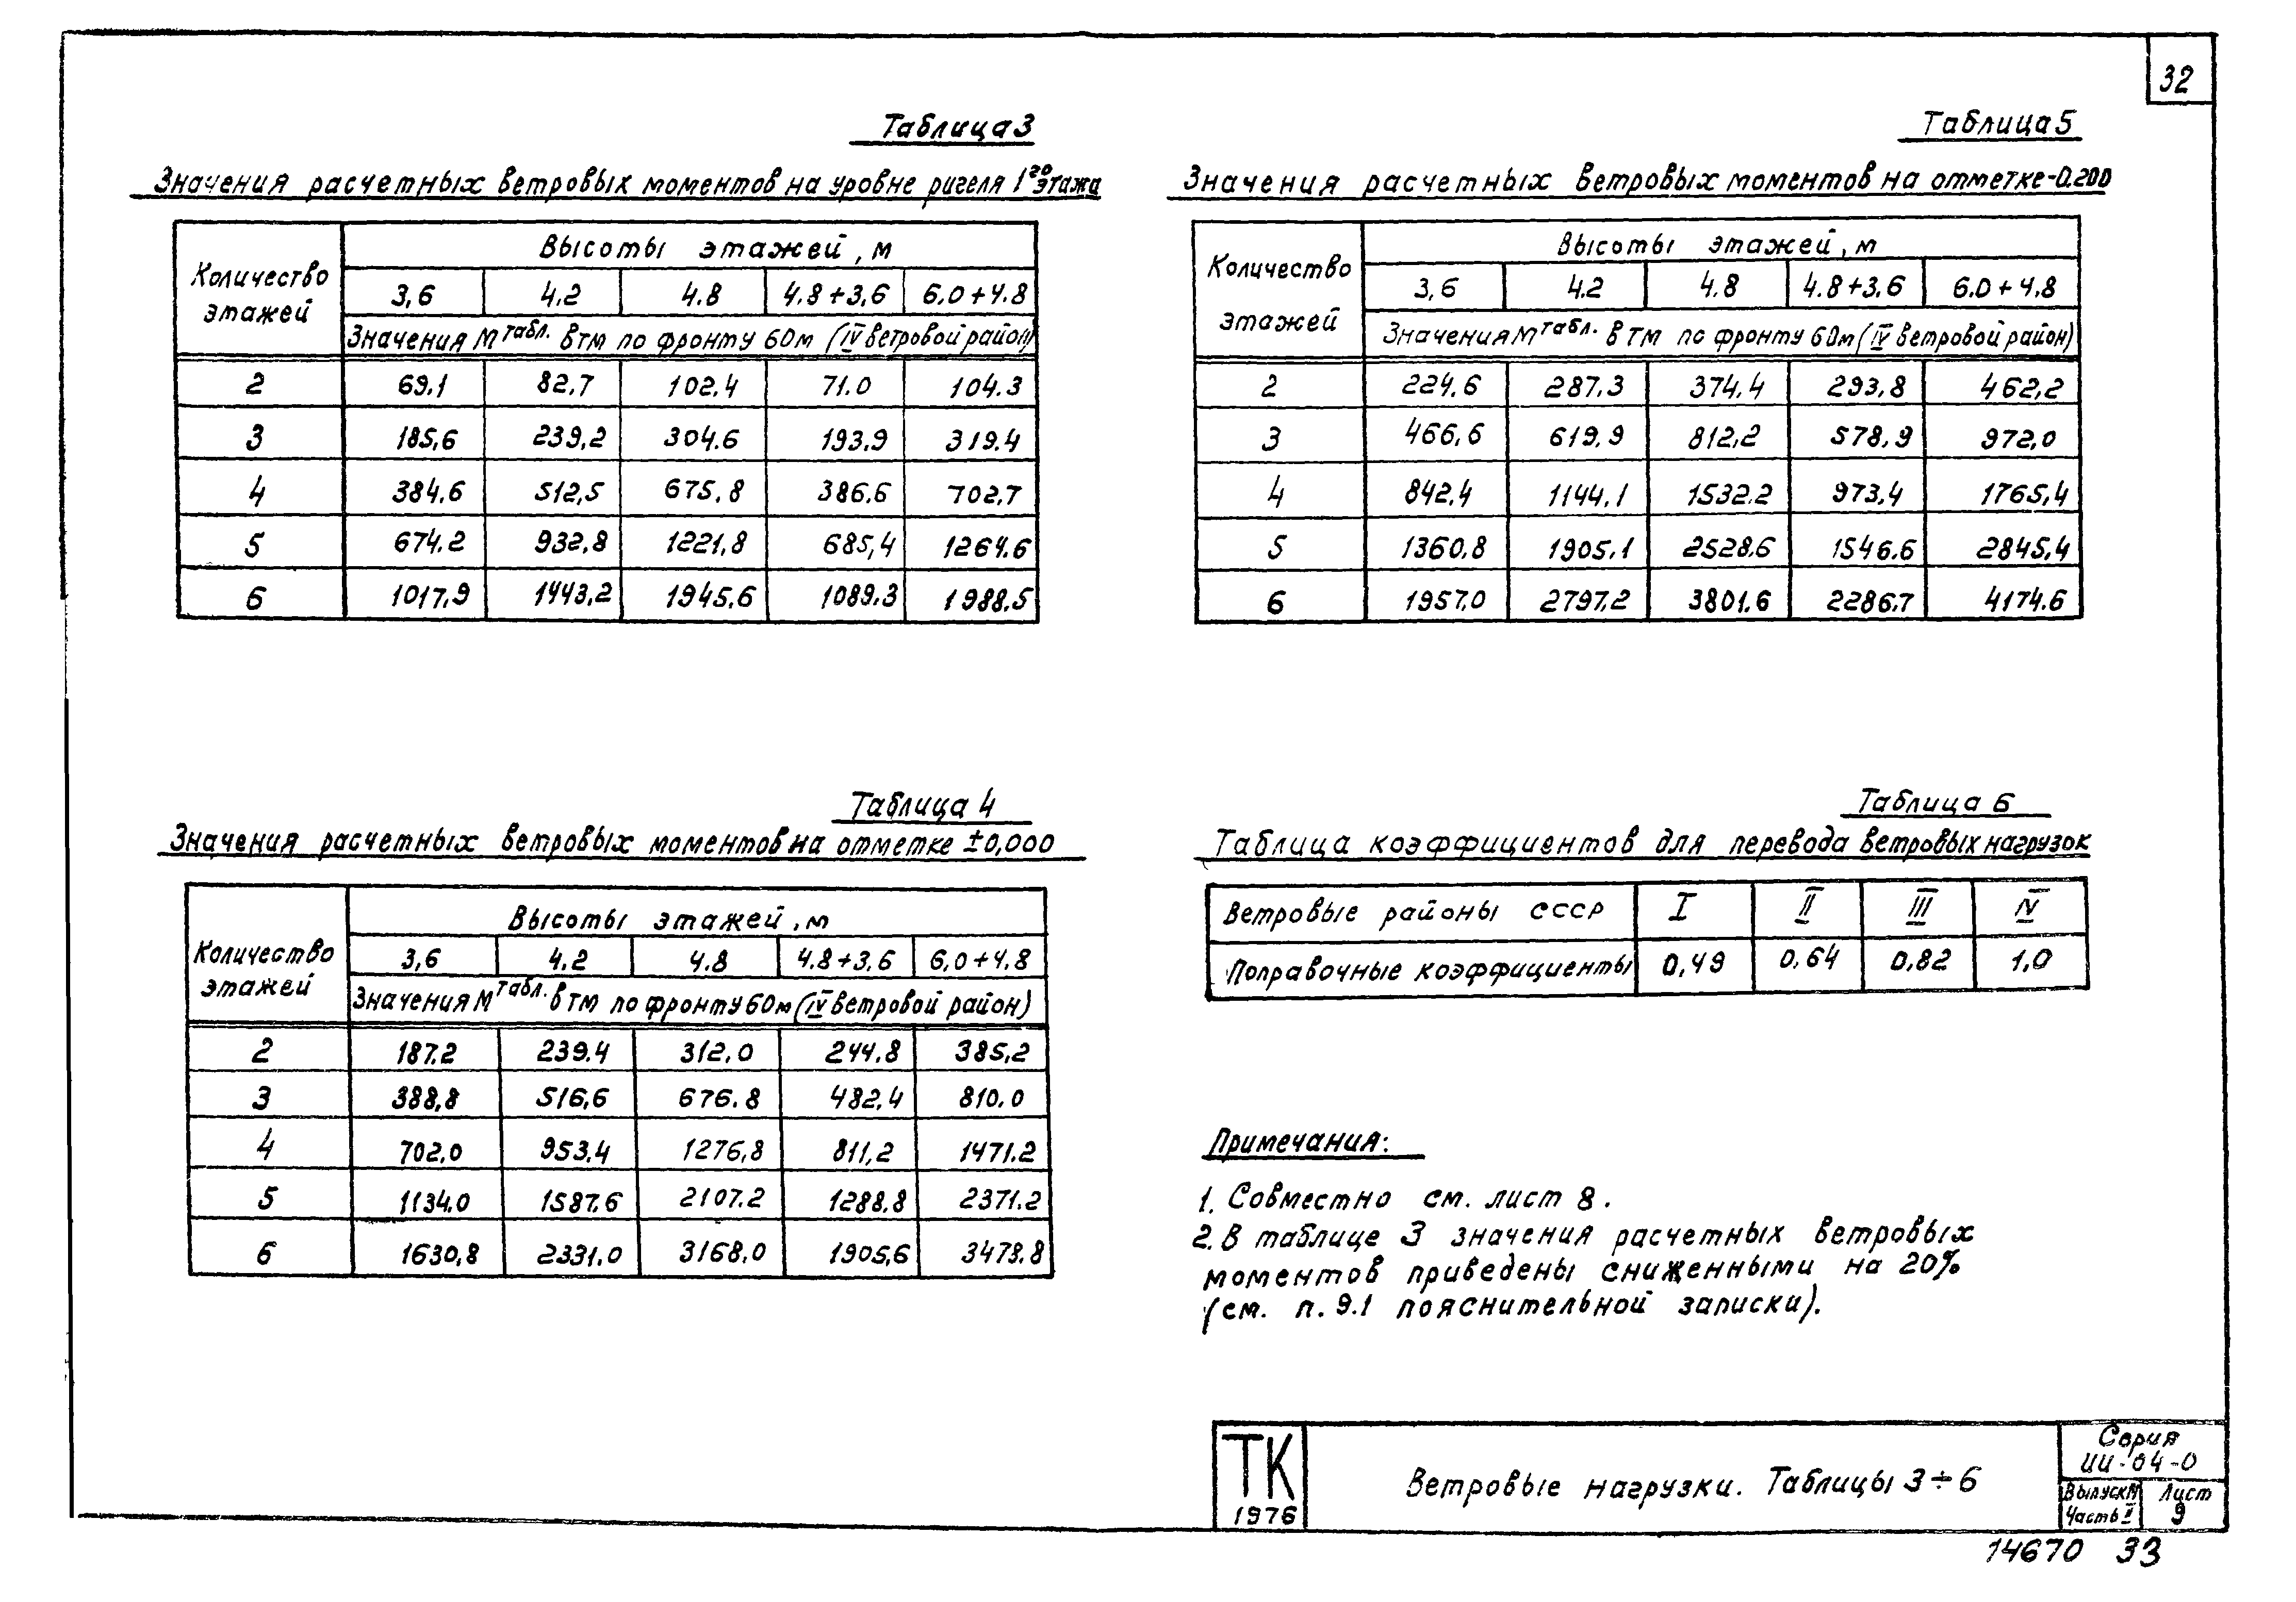 32
Таблица 3
Значения расчетных ветровых моментов на уровне ригеля 1го этажа
Количество этажей
Высоты этажей, м
3,6 4.2 4.8 4.8+3,6 6.0+4.8
Значения Мтабл. в тм по фронту 60м (IV ветровой район)
2 69.1 82.7 102.4 71.0 104.3
3 185,6 239,2 304.6 193.9 319.4
4 384.6 512,5 675.8 386.6 702,7
5 674.2 932,8 1221,8 685,4 1264.6
6 1017,9 1443,2 1945.6 1089.3 1988.5
Таблица 5
Значения расчетных ветровых моментов на отметке -0.200
Количество этажей
Высоты этажей, м
3,6 4.2 4.8 4.8+3.6 6.0+4.8
Значения Мтабл. в тм по фронту 60м (IV ветровой район)
2 224.6 287.3 374.4 293,8 462,2
3 466,6 619,9 812,2 578,9 972,0
4 842,4 1144,1 1532.2 973,4 1765,4
5 1360,8 1905,1 2528.6 1546.6 2845,4
6 1957.0 2797.2 3801.6 2286.7 4174.6
Таблица 4
Значения расчетных ветровых моментов на отметке ±0,000
Количество этажей
Высоты этажей, м
3,6 4.2 4.8 4.8+3,6 6,0+4.8
Значения Мтабл. в тм по фронту 60м (IV ветровой район)
2 187.2 239.4 312,0 244.8 385,2
3 388,8 516,6 676.8 482,4 810.0
4 702,0 953,4 1276,8 811,2 1471.2
5 1134.0 1587.6 2107.2 1288.8 2371.2
6 1630,8 2331.0 3168,0 1905,6 3478.8
Таблица 6
Таблица коэффициентов для перевода ветровых нагрузок
Ветровые районы СССР I II III IV
Поправочные коэффициенты 0,49 0,64 0,82 1,0
Примечания:
1. Совместно см. лист 8.
2. В таблице 3 значения расчетных ветровых
моментов приведены сниженными на 20%
(см. п. 9.1 пояснительной записки).
ТК
1976
Ветровые нагрузки. Таблицы 3÷6
Серия
ИИ-04-0
Выпуск
Часть II
Лист
9
14670 33